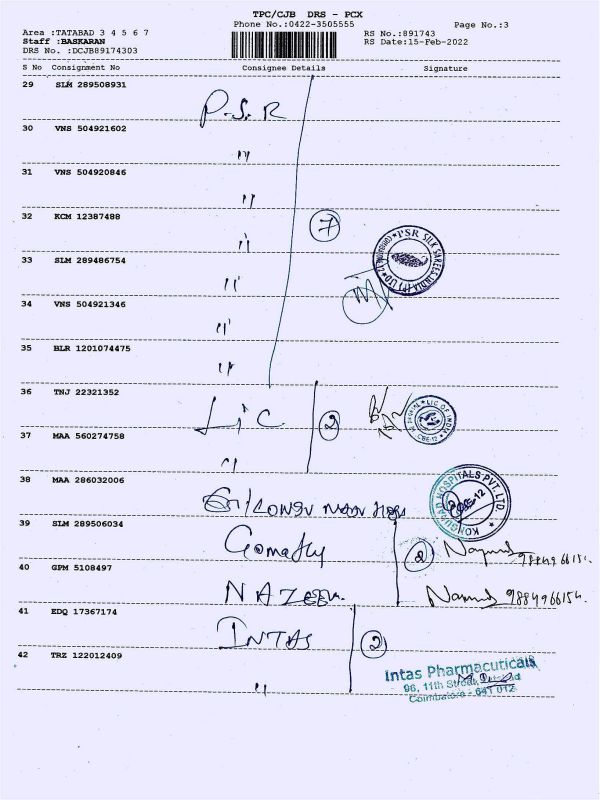 TPC/CJB DRS - PCX
Phone No.:0422-3505555 Page No.:3
Area :TATABAD 3 4 5 6 7 RS No.:891743
Staff :BASKARAN RS Date:15-Feb-2022
DRS No. :DCJB89174303
S No Consignment No Consignee Details Signature
29 SLM 289508931 P.S.R
30 VNS 504921602 "
31 VNS 504920846 "
32 KCM 12387488 " 7
PSR SILK SAREES INDIA (P) LTD
33 SLM 289486754 "
34 VNS 504921346 "
35 BLR 1201074475 "
36 TNJ 22321352 LIC 2
LIC OF INDIA
CBE-12
37 MAA 560274758 "
38 MAA 286032006
HOSPITALS PVT. LTD.
39 SLM 289506034 Gomathy 2
40 GPM 5108497 NAZEEM 9884966154
41 EDQ 17367174 INTAS 2
42 TRZ 122012409 "
Intas Pharmacuticals
96, 11th Street,
Coimbatore - 641 012